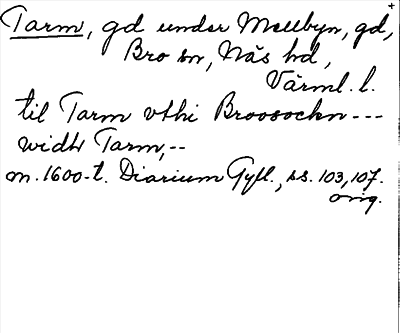 Tarm, gd under Mellbyn, gd,
Bro sn, Näs hd,
Värml. l.
til Tarm vthi Broosochn ---
widh Tarm, --
m. 1600-t. Diarium Gyll., ss. 103, 107.
orig.